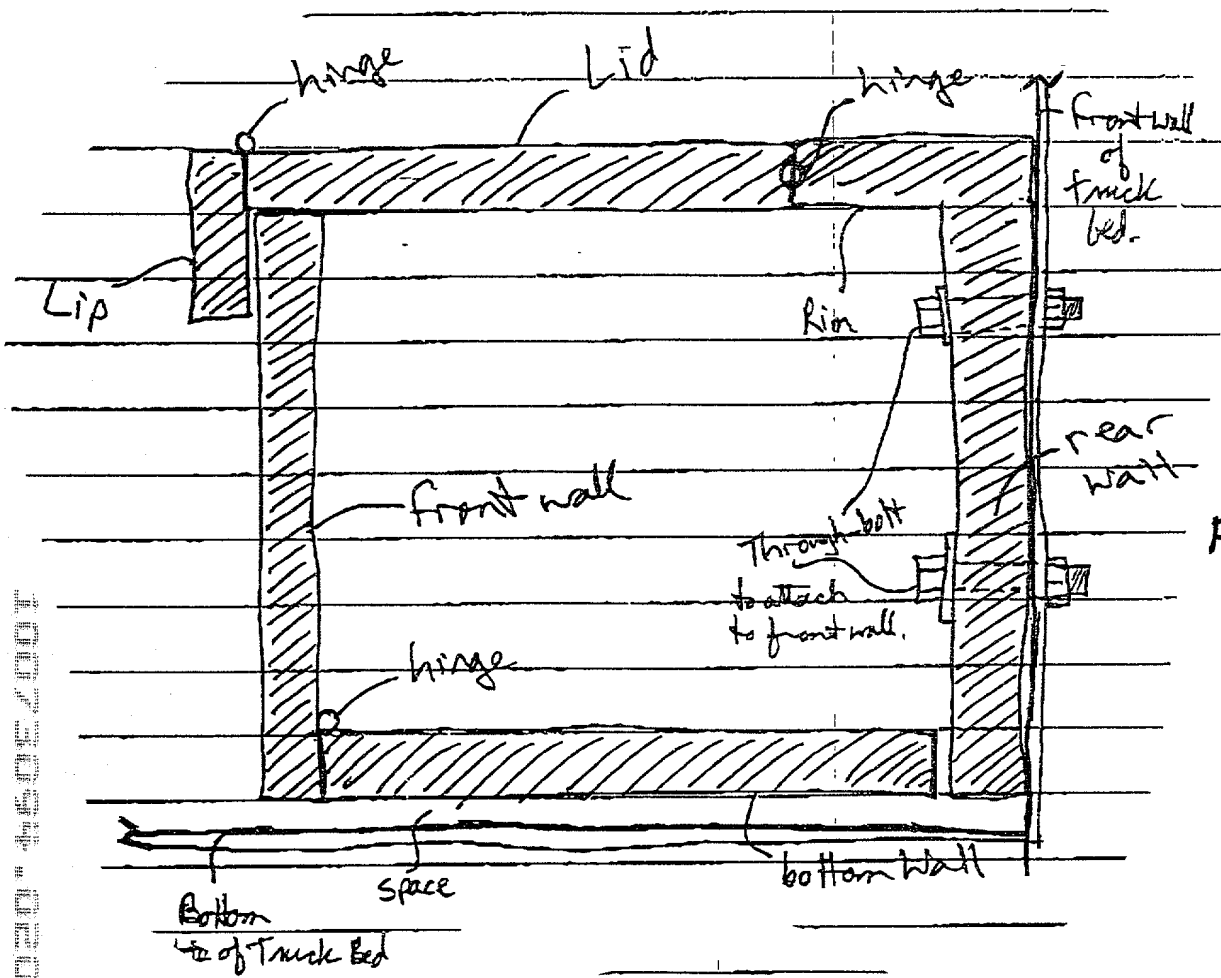 hinge
Lid
hinge
front wall
of
truck
bed.
Lip
Rim
rear
wall
front wall
Through-bolt
to attach
to front wall.
hinge
space
bottom Wall
Bottom
of Truck Bed